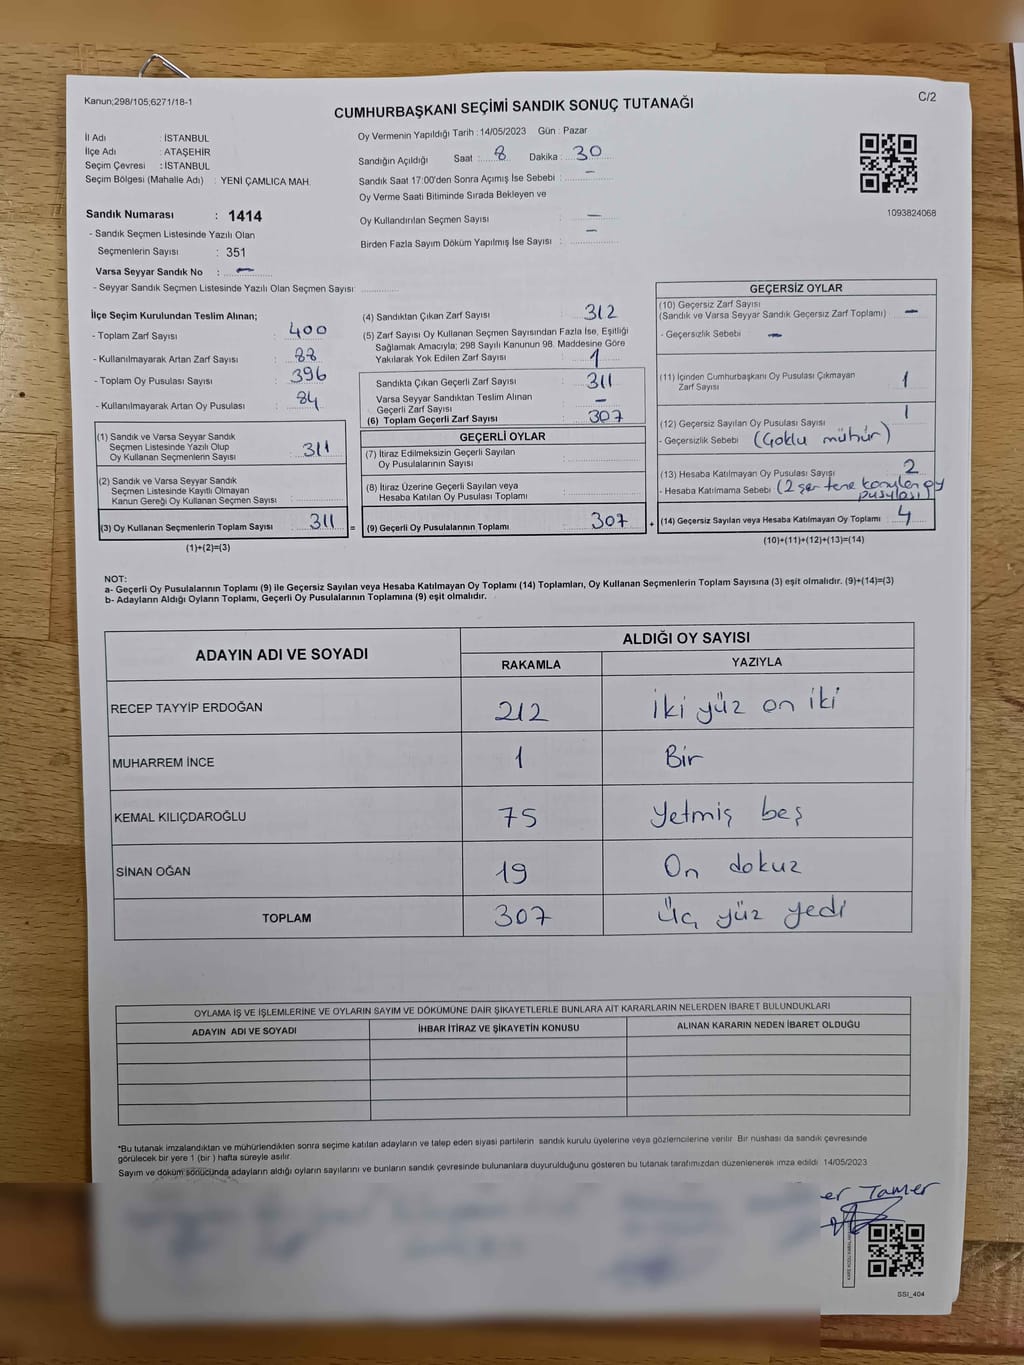 Kanun;298/105;6271/18-1
C/2
CUMHURBAŞKANI SEÇİMİ SANDIK SONUÇ TUTANAĞI
İl Adı : İSTANBUL
İlçe Adı : ATAŞEHİR
Seçim Çevresi : İSTANBUL
Seçim Bölgesi (Mahalle Adı) : YENİ ÇAMLICA MAH.
Oy Vermenin Yapıldığı Tarih : 14/05/2023 Gün : Pazar
Sandığın Açıldığı Saat : 8 Dakika : 30
Sandık Saat 17:00'den Sonra Açımış İse Sebebi : –
Oy Verme Saati Bitiminde Sırada Bekleyen ve
Oy Kullandırılan Seçmen Sayısı : –
Birden Fazla Sayım Döküm Yapılmış İse Sayısı : –
1093824068
Sandık Numarası : 1414
- Sandık Seçmen Listesinde Yazılı Olan
Seçmenlerin Sayısı : 351
Varsa Seyyar Sandık No : –
- Seyyar Sandık Seçmen Listesinde Yazılı Olan Seçmen Sayısı:
İlçe Seçim Kurulundan Teslim Alınan;
- Toplam Zarf Sayısı : 400
- Kullanılmayarak Artan Zarf Sayısı : 88
- Toplam Oy Pusulası Sayısı : 396
- Kullanılmayarak Artan Oy Pusulası : 84
(1) Sandık ve Varsa Seyyar Sandık
Seçmen Listesinde Yazılı Olup
Oy Kullanan Seçmenlerin Sayısı : 311
(2) Sandık ve Varsa Seyyar Sandık
Seçmen Listesinde Kayıtlı Olmayan
Kanun Gereği Oy Kullanan Seçmen Sayısı :
(3) Oy Kullanan Seçmenlerin Toplam Sayısı : 311 =
(1)+(2)=(3)
(4) Sandıktan Çıkan Zarf Sayısı : 312
(5) Zarf Sayısı Oy Kullanan Seçmen Sayısından Fazla İse, Eşitliği
Sağlamak Amacıyla; 298 Sayılı Kanunun 98. Maddesine Göre
Yakılarak Yok Edilen Zarf Sayısı : 1
Sandıkta Çıkan Geçerli Zarf Sayısı : 311
Varsa Seyyar Sandıktan Teslim Alınan
Geçerli Zarf Sayısı : –
(6) Toplam Geçerli Zarf Sayısı : 307
GEÇERLİ OYLAR
(7) İtiraz Edilmeksizin Geçerli Sayılan
Oy Pusulalarının Sayısı :
(8) İtiraz Üzerine Geçerli Sayılan veya
Hesaba Katılan Oy Pusulası Toplamı :
(9) Geçerli Oy Pusulalarının Toplamı : 307 +
GEÇERSİZ OYLAR
(10) Geçersiz Zarf Sayısı
(Sandık ve Varsa Seyyar Sandık Geçersiz Zarf Toplamı) : –
- Geçersizlik Sebebi : –
(11) İçinden Cumhurbaşkanı Oy Pusulası Çıkmayan
Zarf Sayısı : 1
(12) Geçersiz Sayılan Oy Pusulası Sayısı : 1
- Geçersizlik Sebebi (Çoklu mühür)
(13) Hesaba Katılmayan Oy Pusulası Sayısı : 2
- Hesaba Katılmama Sebebi : (2 şer tane konulan oy
pusulası)
(14) Geçersiz Sayılan veya Hesaba Katılmayan Oy Toplamı : 4
(10)+(11)+(12)+(13)=(14)
NOT:
a- Geçerli Oy Pusulalarının Toplamı (9) ile Geçersiz Sayılan veya Hesaba Katılmayan Oy Toplamı (14) Toplamları, Oy Kullanan Seçmenlerin Toplam Sayısına (3) eşit olmalıdır. (9)+(14)=(3)
b- Adayların Aldığı Oyların Toplamı, Geçerli Oy Pusulalarının Toplamına (9) eşit olmalıdır.
ADAYIN ADI VE SOYADI ALDIĞI OY SAYISI
RAKAMLA YAZIYLA
RECEP TAYYİP ERDOĞAN 212 İki yüz on iki
MUHARREM İNCE 1 Bir
KEMAL KILIÇDAROĞLU 75 Yetmiş beş
SİNAN OĞAN 19 On dokuz
TOPLAM 307 Üç yüz yedi
OYLAMA İŞ VE İŞLEMLERİNE VE OYLARIN SAYIM VE DÖKÜMÜNE DAİR ŞİKAYETLERLE BUNLARA AİT KARARLARIN NELERDEN İBARET BULUNDUKLARI
ADAYIN ADI VE SOYADI İHBAR İTİRAZ VE ŞİKAYETİN KONUSU ALINAN KARARIN NEDEN İBARET OLDUĞU
*Bu tutanak imzalandıktan ve mühürlendikten sonra seçime katılan adayların ve talep eden siyasi partilerin sandık kurulu üyelerine veya gözlemcilerine verilir. Bir nüshası da sandık çevresinde
görülecek bir yere 1 (bir) hafta süreyle asılır.
Sayım ve döküm sonucunda adayların aldığı oyların sayılarını ve bunların sandık çevresinde bulunanlara duyurulduğunu gösteren bu tutanak tarafımızdan düzenlenerek imza edildi. 14/05/2023
er Tamer
SSI_404